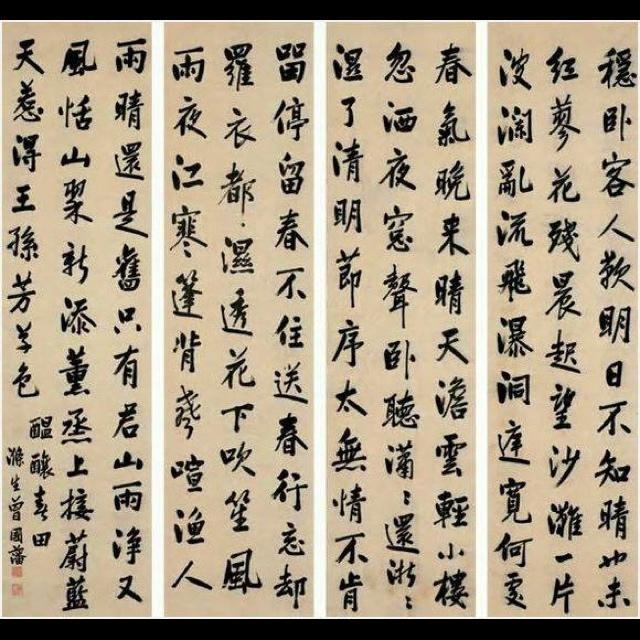 穩卧客人歎明日不知晴也未
红蓼花殘晨起望沙灘一片
波瀾亂流飛瀑洞庭寬何處
春氣晚来晴天澹雲輕小樓
忽洒夜窓聲卧聽瀟〻還淅〻
濕了清明節序太無情不肯
畱停留春不住送春行忘却
羅衣都〻濕透花下吹笙風
雨夜江寒〻篷背聲喧漁人
雨晴還是舊只有君山雨净又
風恬山翠新添薰蒸上接蔚藍
天惹得王孫芳草色
醖釀春田
滌生曾國藩